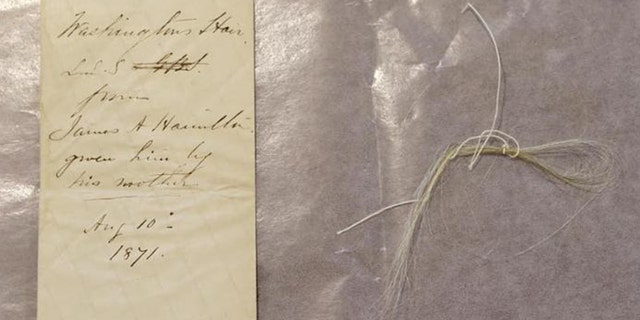 Washingtons Hair.
L.S.
from
James A Hamilton
given him by
his mother
Aug 10
1871.